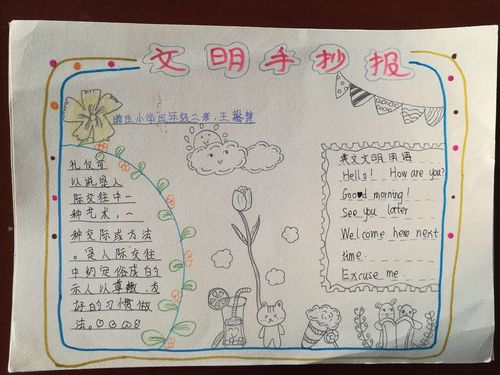 文明手抄报
小学五年级二班 王馨慧
礼仪可
以说是人
际交往中一
种艺术,一
种交际或方法
。是人际交往
中约定俗成的
示人以尊敬、友
好的习惯做
法。
英文文明用语
Hello! How are you?
Good morning!
See you later
Welcome here next
time.
Excuse me